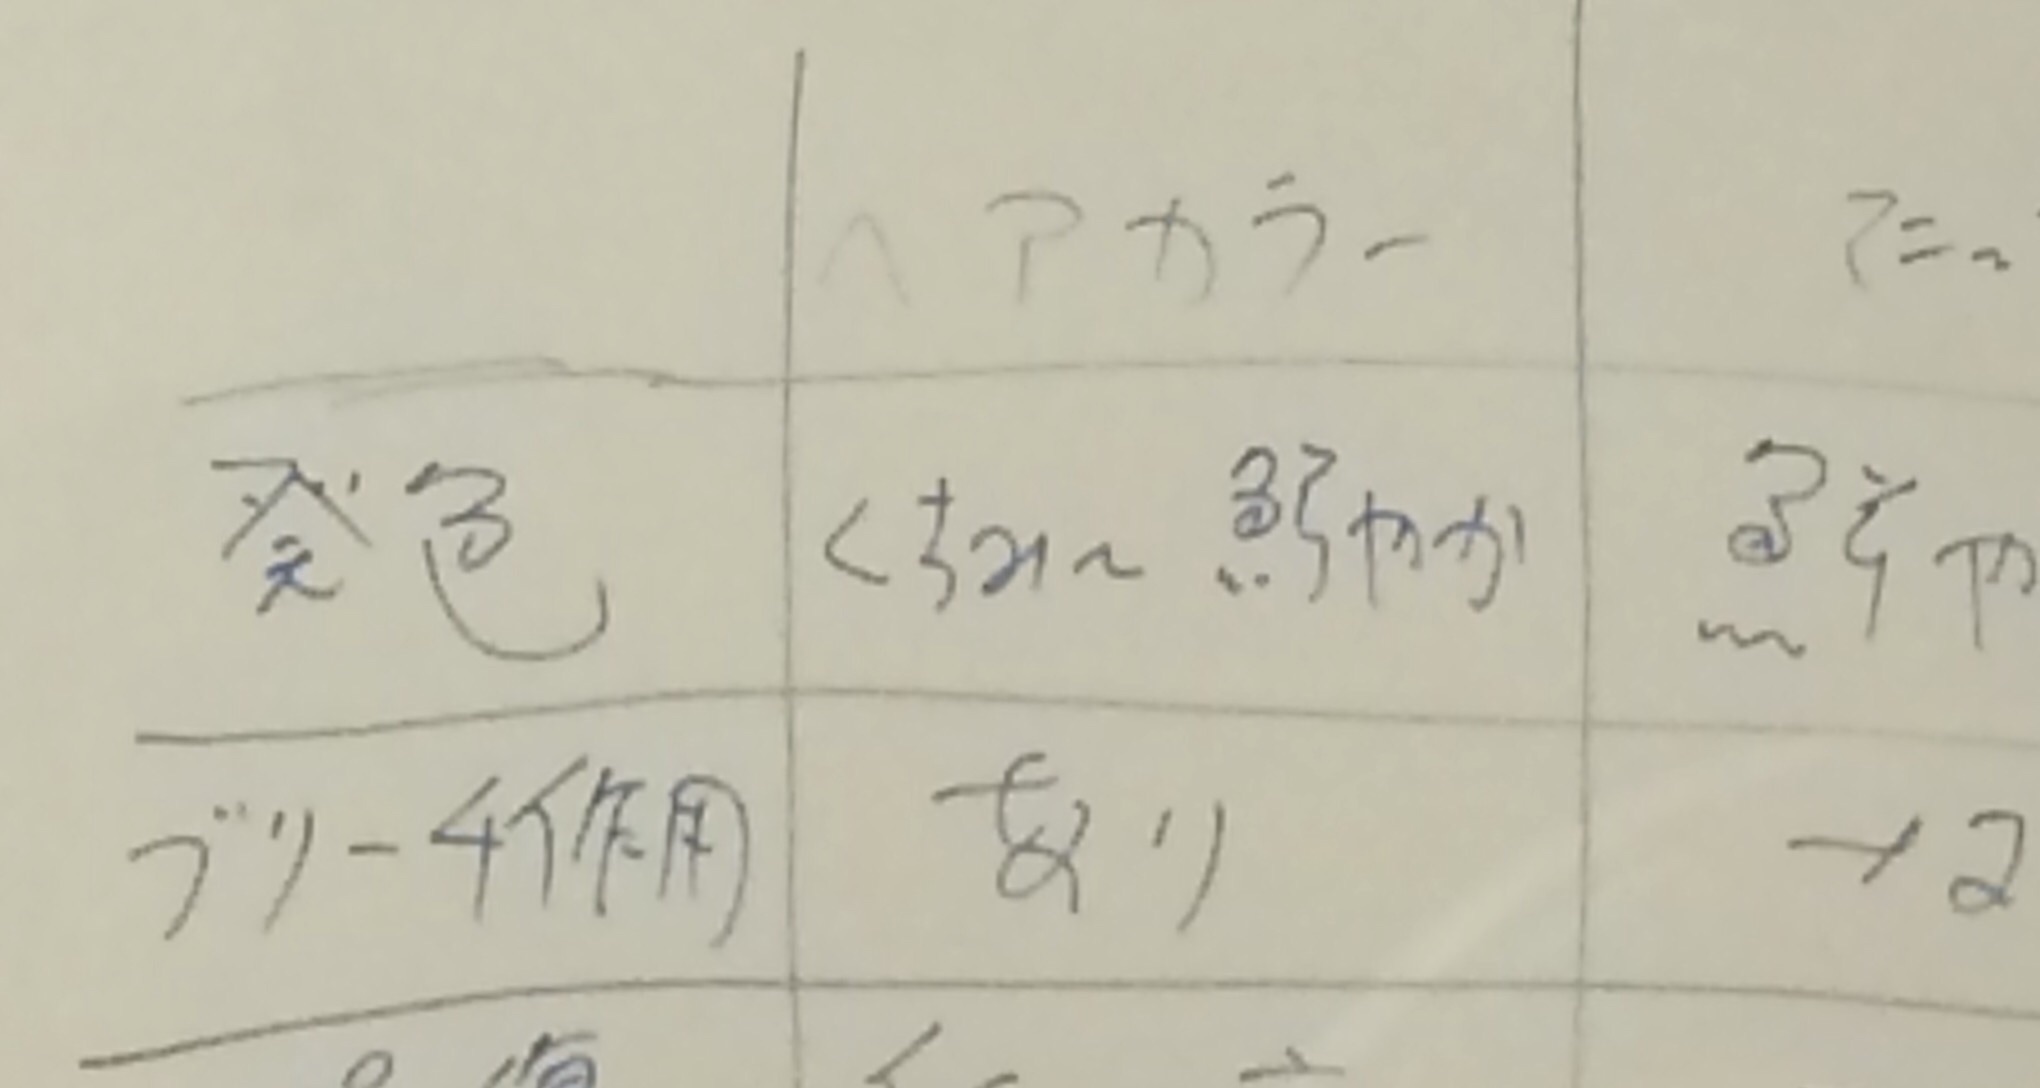 ヘアカラー マニ
発色 くすみ~鮮やか 鮮や
ブリーチ作用 あり